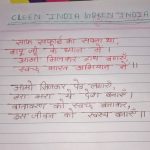 CLEEN INDIA GREEN INDIA
साफ सफाई का सपना था,
बापू जी के ध्यान में ।
आओ मिलकर हाथ बटाएँ,
स्वच्छ भारत अभियान में ॥
आओ मिलकर, पेड़ लगाएँ,
हरा भरा ये देश बनाएँ।
वातावरण को स्वच्छ बनाकर,
हम जीवन को स्वस्थ बनाएँ॥